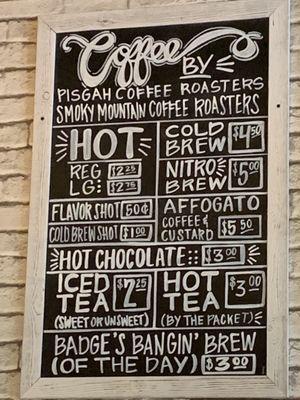 Coffee BY
PISGAH COFFEE ROASTERS
SMOKY MOUNTAIN COFFEE ROASTERS
HOT
REG $2.25
LG: $2.75
COLD BREW $4.50
NITRO BREW $5.00
FLAVOR SHOT 50¢
COLD BREW SHOT $1.00
AFFOGATO
COFFEE & CUSTARD $5.50
HOT CHOCOLATE $3.00
ICED TEA $2.25
(SWEET OR UNSWEET)
HOT TEA $3.00
(BY THE PACKET)
BADGE'S BANGIN' BREW
(OF THE DAY) $3.00